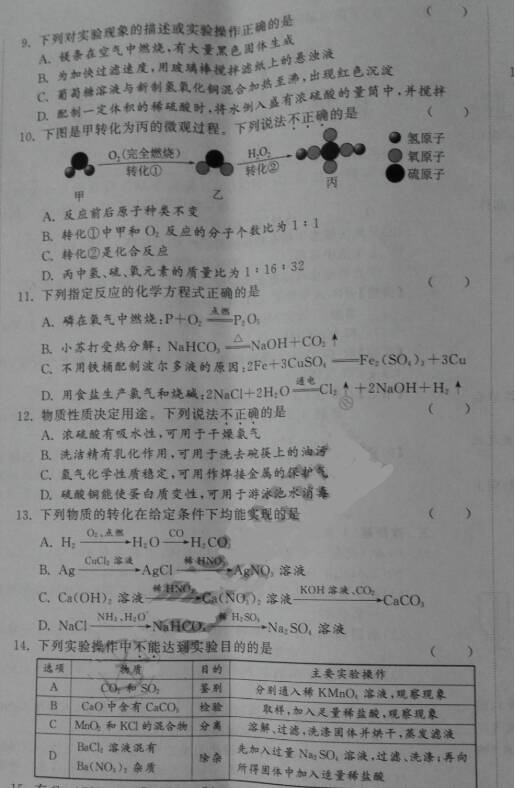 ( )
9. 下列对实验现象的描述或实验操作正确的是
A. 镁条在空气中燃烧,有大量黑色固体生成
B. 为加快过滤速度,用玻璃棒搅拌滤纸上的悬浊液
C. 葡萄糖溶液与新制氢氧化铜混合加热至沸,出现红色沉淀
D. 配制一定体积的稀硫酸时,将水倒入盛有浓硫酸的量筒中,并搅拌
10. 下图是甲转化为丙的微观过程。下列说法不正确的是 ( )
O₂(完全燃烧) 转化① H₂O₂ 转化② 氢原子
氧原子
硫原子
甲 乙 丙
A. 反应前后原子种类不变
B. 转化①中甲和 O₂ 反应的分子个数比为 1∶1
C. 转化②是化合反应
D. 丙中氢、硫、氧元素的质量比为 1∶16∶32
11. 下列指定反应的化学方程式正确的是 ( )
A. 磷在氧气中燃烧:P+O₂ 点燃══ P₂O₅
B. 小苏打受热分解:NaHCO₃ △══ NaOH+CO₂↑
C. 不用铁桶配制波尔多液的原因:2Fe+3CuSO₄══Fe₂(SO₄)₃+3Cu
D. 用食盐生产氯气和烧碱:2NaCl+2H₂O 通电══ Cl₂↑+2NaOH+H₂↑
12. 物质性质决定用途。下列说法不正确的是 ( )
A. 浓硫酸有吸水性,可用于干燥氯气
B. 洗洁精有乳化作用,可用于洗去碗筷上的油污
C. 氦气化学性质稳定,可用作焊接金属的保护气
D. 硫酸铜能使蛋白质变性,可用于游泳池水消毒
13. 下列物质的转化在给定条件下均能实现的是 ( )
A. H₂ O₂、点燃→ H₂O CO→ H₂CO₃
B. Ag CuCl₂ 溶液→ AgCl 稀 HNO₃→ AgNO₃ 溶液
C. Ca(OH)₂ 溶液 稀 HNO₃→ Ca(NO₃)₂ 溶液 KOH 溶液、CO₂→ CaCO₃
D. NaCl NH₃、H₂O→ NaHCO₃ 稀 H₂SO₄→ Na₂SO₄ 溶液
14. 下列实验操作中不能达到实验目的的是 ( )
选项 物质 目的 主要实验操作
A CO₂ 和 SO₂ 鉴别 分别通入稀 KMnO₄ 溶液,观察现象
B CaO 中含有 CaCO₃ 检验 取样,加入足量稀盐酸,观察现象
C MnO₂ 和 KCl 的混合物 分离 溶解、过滤,洗涤固体并烘干,蒸发滤液
D BaCl₂ 溶液混有 Ba(NO₃)₂ 杂质 除杂 先加入过量 Na₂SO₄ 溶液,过滤、洗涤;再向
所得固体中加入适量稀盐酸